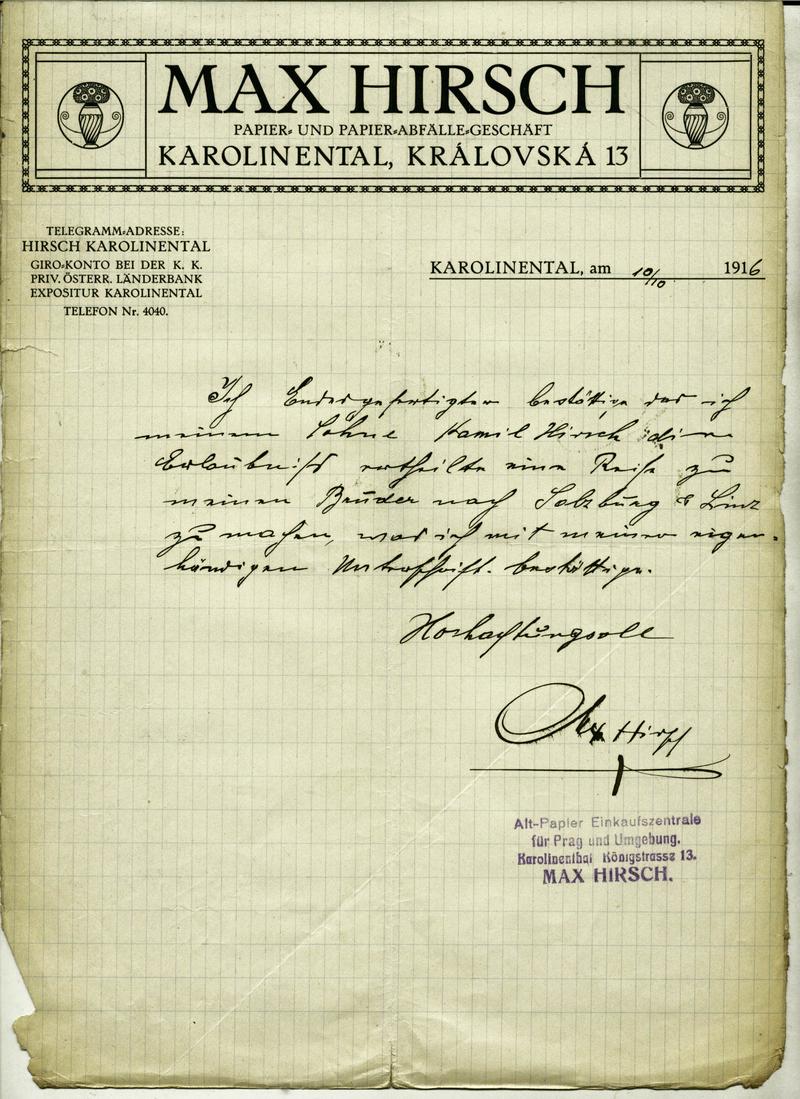 MAX HIRSCH
PAPIER- UND PAPIER-ABFÄLLE-GESCHÄFT
KAROLINENTAL, KRÁLOVSKÁ 13
TELEGRAMM-ADRESSE:
HIRSCH KAROLINENTAL
GIRO-KONTO BEI DER K. K.
PRIV. ÖSTERR. LÄNDERBANK
EXPOSITUR KAROLINENTAL
TELEFON Nr. 4040.
KAROLINENTAL, am 10/10. 1916
Ich Endesgefertigter bestättige das ich
meinem Sohne Kamil Hirsch die
Erlaubniß ertheilte eine Reise zu
meinen Bruder nach Salzburg & Linz
zu machen, was ich mit meiner eigen-
händigen Unterschrift. bestättige.
Hochachtungsvoll
Max Hirsch
Alt-Papier Einkaufszentrale
für Prag und Umgebung.
Karolinenthal Königstrasse 13.
MAX HIRSCH.